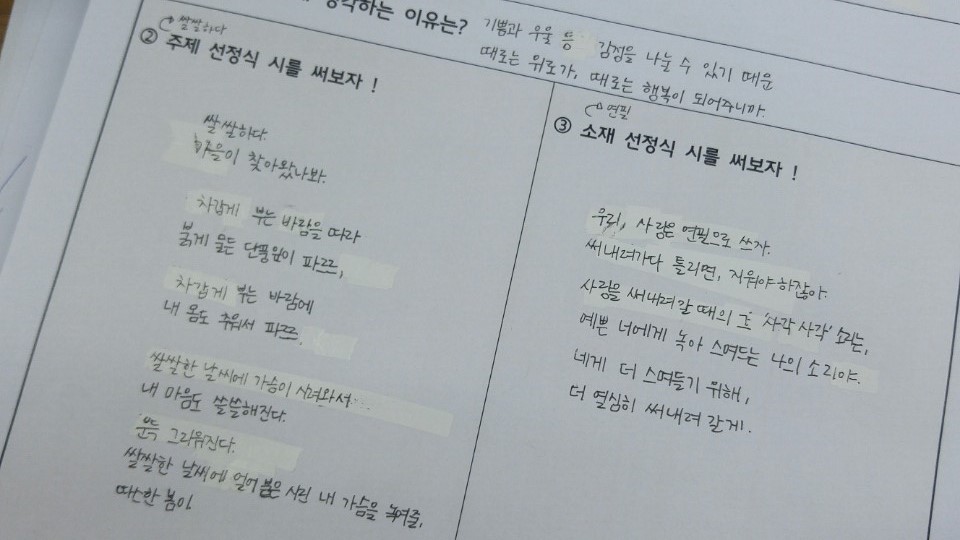 생각하는 이유는?
기쁨과 우울 등 감정을 나눌 수 있기 때문
때로는 위로가, 때로는 행복이 되어주니까.
쌀쌀하다
② 주제 선정식 시를 써보자 !
쌀쌀하다.
가을이 찾아왔나봐.
차갑게 부는 바람을 따라
붉게 물든 단풍잎이 파르르,
차갑게 부는 바람에
내 몸도 추워서 파르르.
쌀쌀한 날씨에 가슴이 시려와서...
내 마음도 쓸쓸해진다.
문득 그리워진다.
쌀쌀한 날씨에 얼어붙은 시린 내 가슴을 녹여줄,
따스한 봄이.
연필
③ 소재 선정식 시를 써보자 !
우리, 사랑은 연필으로 쓰자.
써내려가다 틀리면, 지워야 하잖아.
사랑을 써내려 갈 때의 그 '사각 사각' 소리는,
예쁜 너에게 녹아 스며드는 나의 소리야.
네게 더 스며들기 위해,
더 열심히 써내려 갈게.